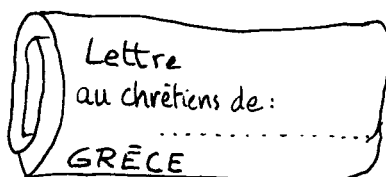 Lettre
au chrétiens de:
....................
GRÈCE